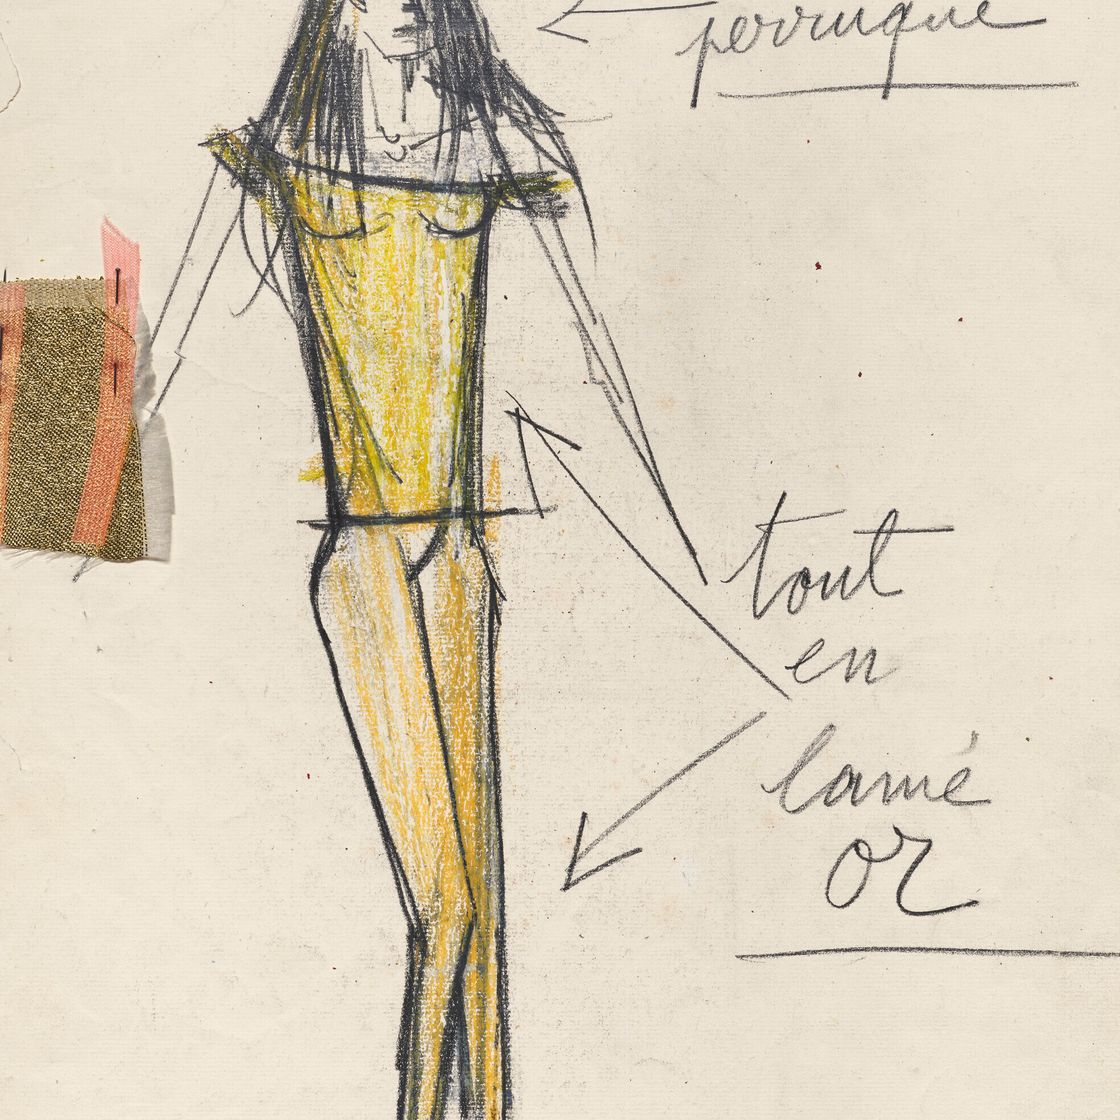 perruque
tout
en
lamé
or